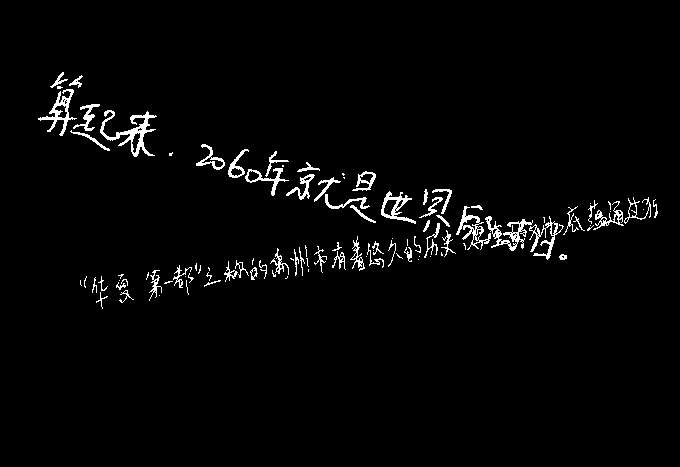 算起来.2060年就是世界
“华夏第一都”之称的禹州市有着悠久的历史底蕴通过